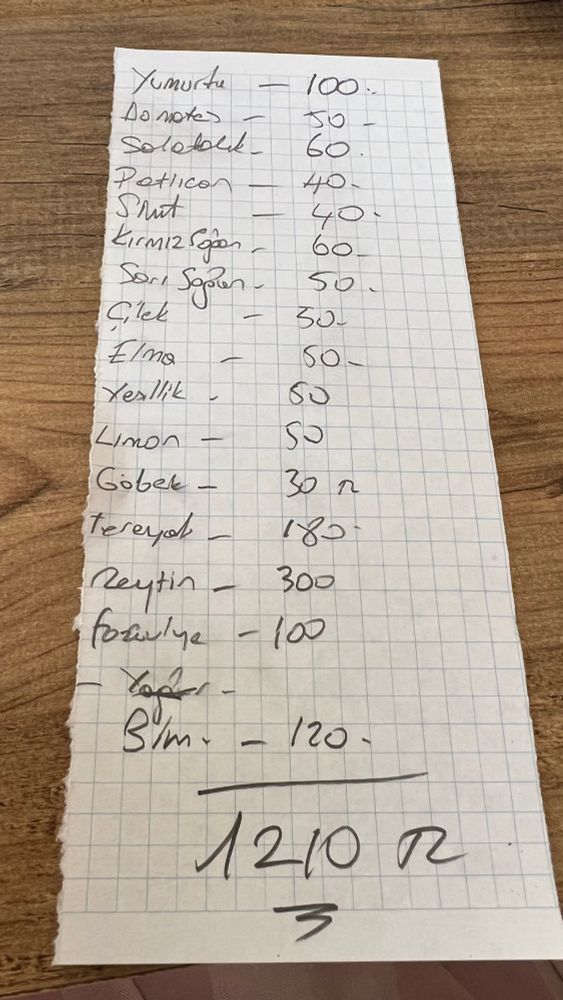 Yumurta — 100.-
Domates — 50 -
Salatalık - 60.
Patlıcan — 40.-
Simit — 40.-
Kırmız Soğan - 60 -
Sarı Soğan - 50.-
Çilek - 30.-
Elma - 50 -
Yeşillik - 50
Limon - 50
Göbek - 30 TL
tereyab - 180.-
Zeytin - 300
fasulye - 100
Blm. - 120.-
1210 TL